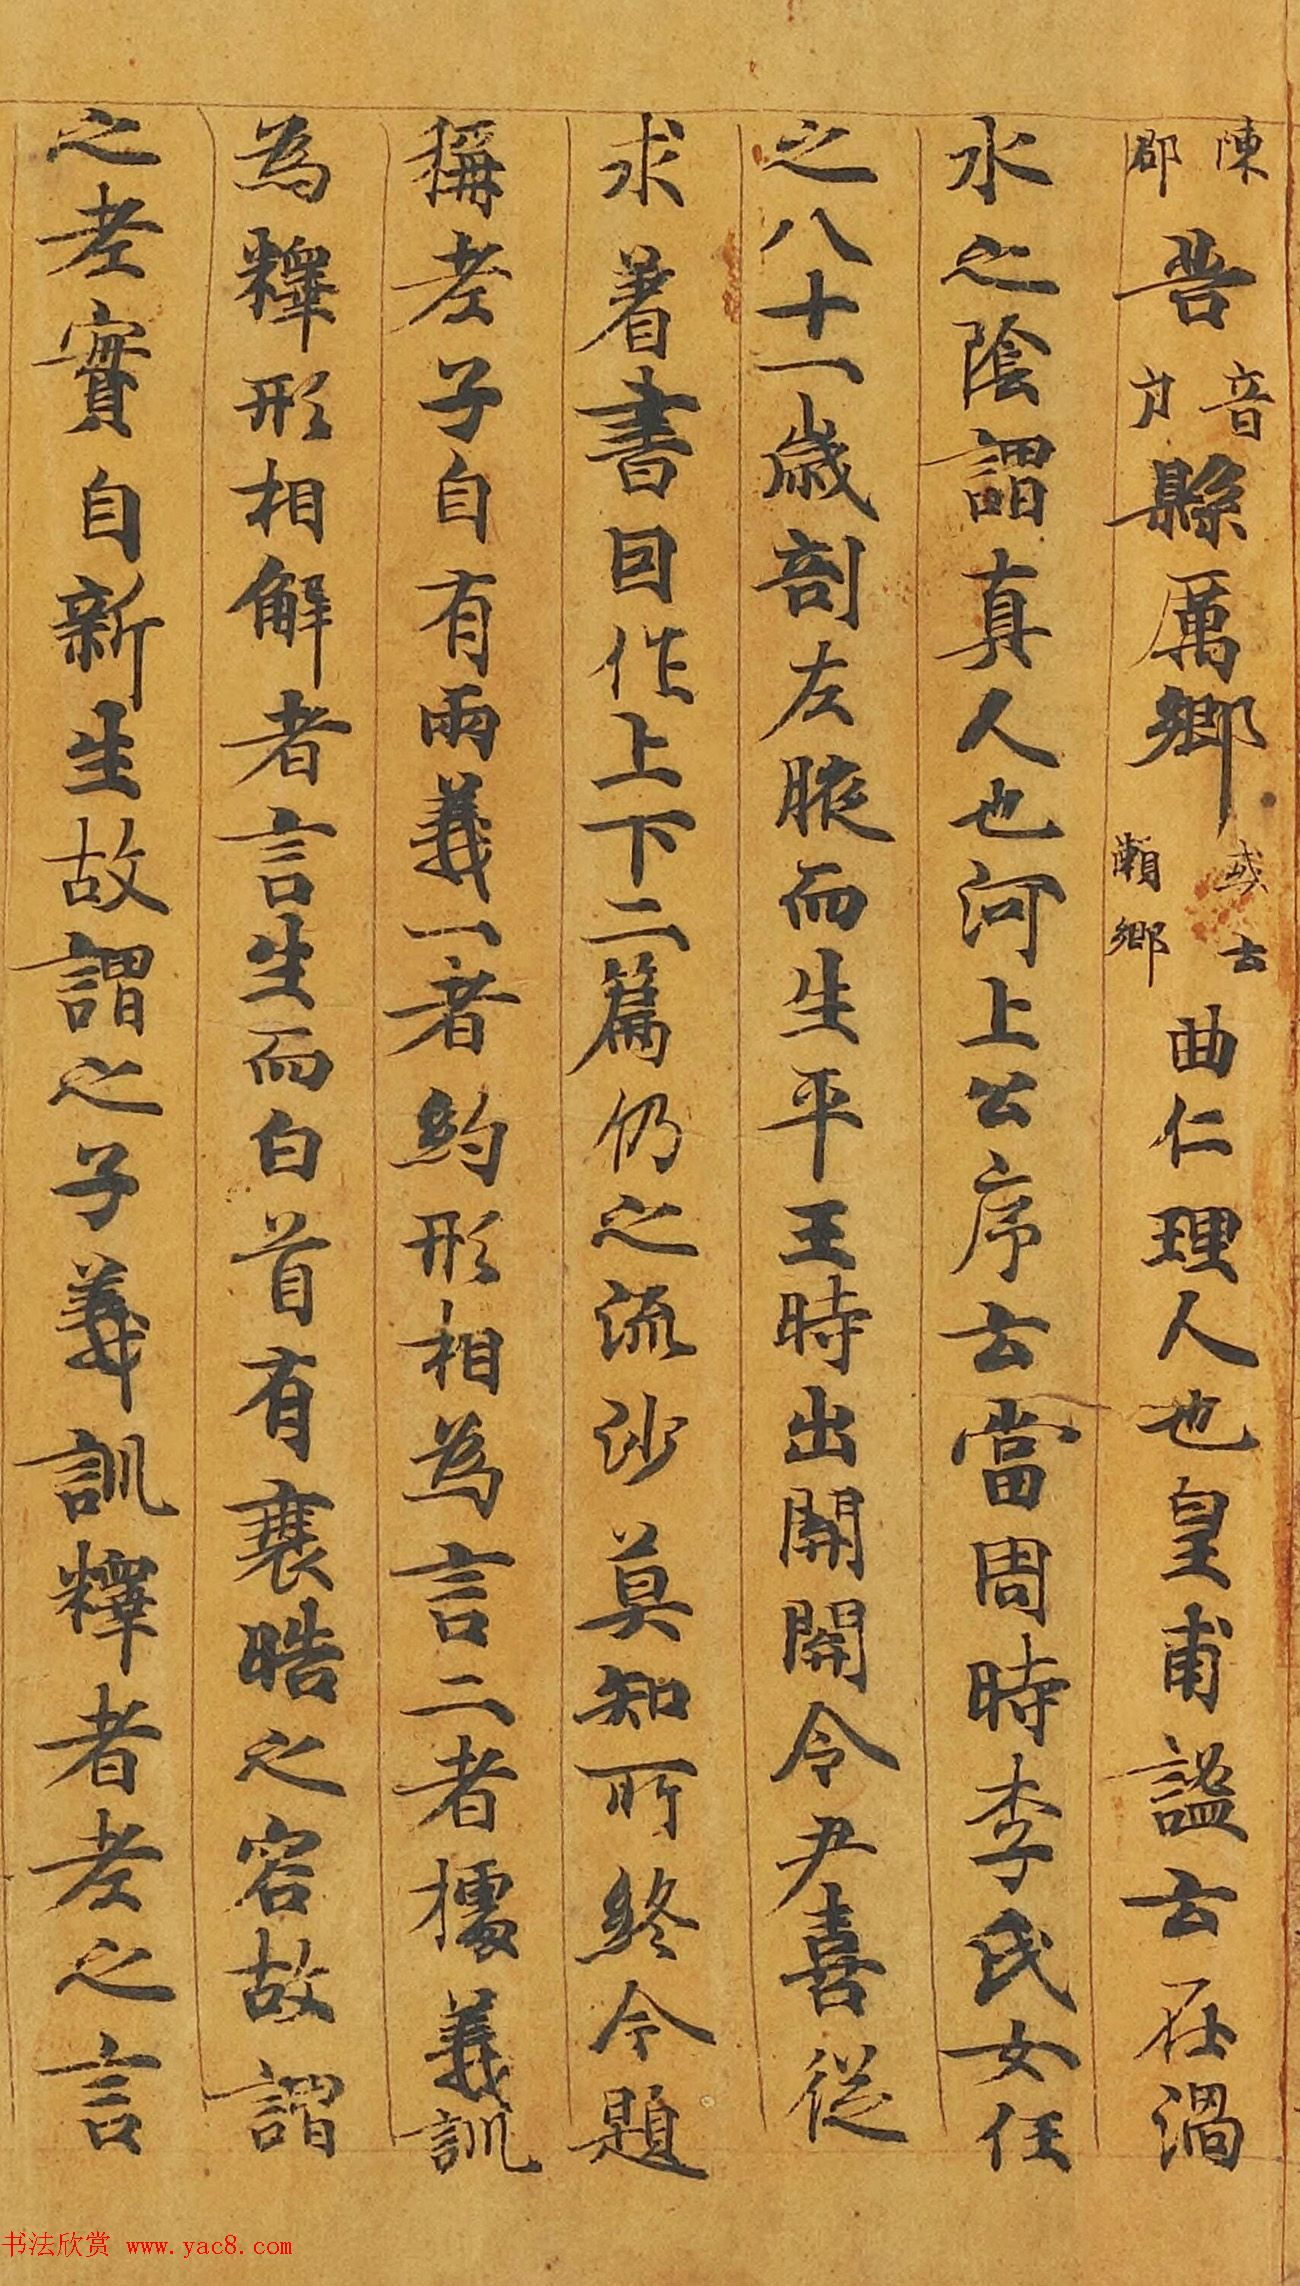 陳郡苦音户縣厲鄉或云瀨鄉曲仁理人也皇甫謐云在渦
水之陰謂真人也河上公序云當周時李氏女任
之八十一歲剖左腋而生平王時出開開令尹喜從
求著書回作上下二篇仍之流沙莫知所終今題
稱老子自有兩義一者約形相為言二者據義訓
為釋形相解者言生而白首有衰皓之容故謂
之老實自新生故謂之子義訓釋者老之言
书法欣赏 www.yac8.com